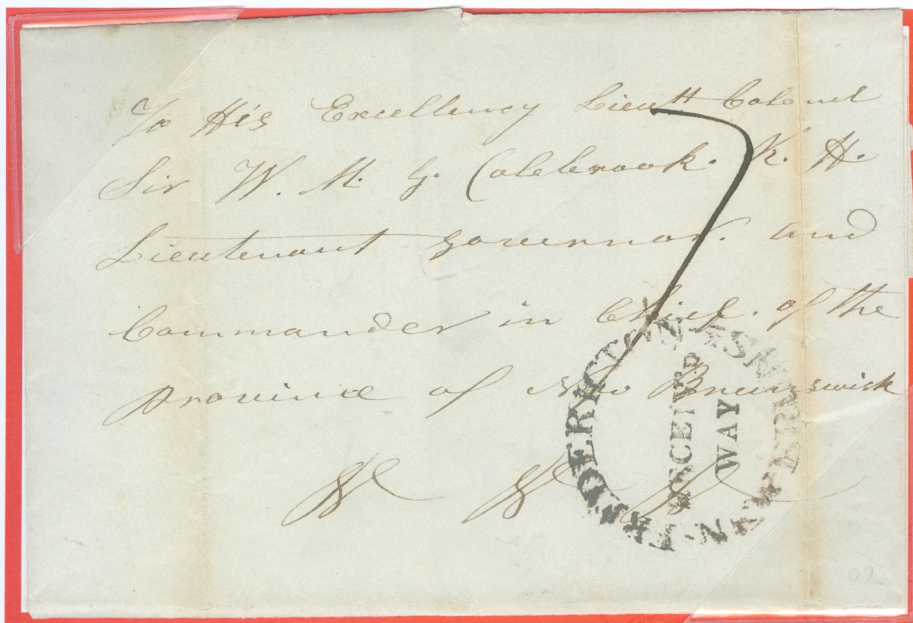 To His Excellency Lieutt Colonel
Sir W. M. G. Colebrook. K. H.
Lieutenant Governor. and
Commander in Chief. of the
Province of New Brunswick
&c &c &c
7
FREDERICTON
NEW BRUNSWICK
RECEIVED
WAY